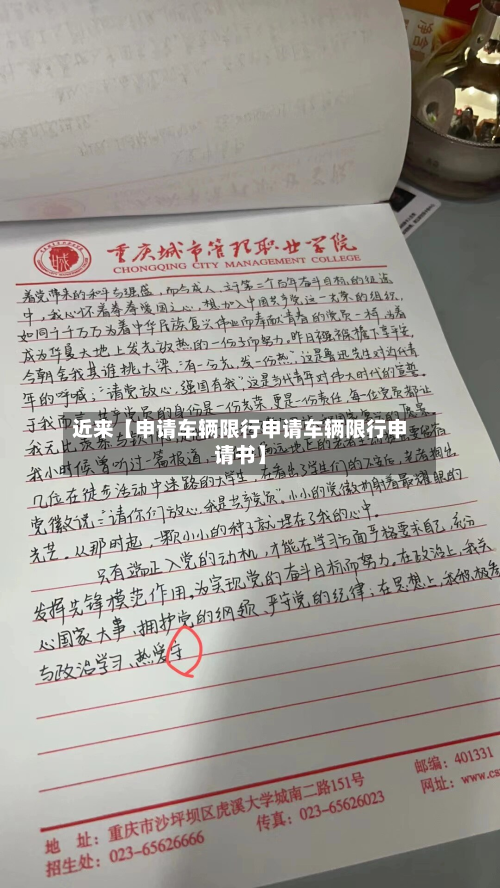 重庆城市管理职业学院
CHONGQING CITY MANAGEMENT COLLEGE
中,我心怀着眷眷爱国之心,想加入中国共产党这一光荣的组织,
如同千千万万为着中华民族复兴伟业而奉献青春的党员一样,为着
成为华夏大地上发光放热的一份子而努力。昨日强襁褓下享平安,
今朝舍我其谁挑大梁,“有一分光,发一份热”,这是鲁迅先生对当代青
年的呼喊;“请党放心,强国有我”,这是当代青年对伟大时代的宣誓。
于我而言,共产党员的身份是一份光荣,更是一份责任,每一位党员都让
近来【申请车辆限行申请车辆限行申
请书】
我小时候曾听过一篇报道,
几位在徒步活动中迷路的大学生,在看出了学生们的不安后,老者掏出
党徽说:“请你们放心,我是共产党员。”小小的党徽折射着最耀眼的
光芒。从那时起,一颗小小的种子就埋在了我的心中。
只有端正入党的动机,才能在学习方面严格要求自己,充分
发挥先锋模范作用,为实现党的奋斗目标而努力。在政治上,我关
心国家大事、拥护党的纲领、严守党的纪律;在思想上,我积极参
与政治学习、热爱守
地 址:重庆市沙坪坝区虎溪大学城南二路151号
邮编:401331
招生处:023-65626666
传真:023-65626023
网址:www.cs